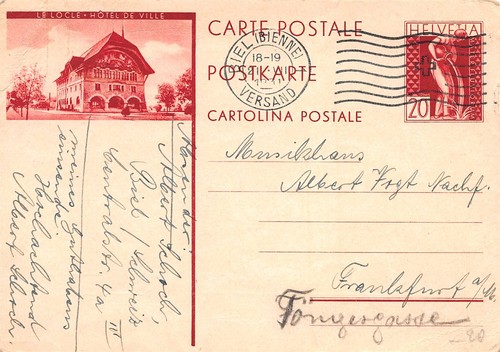 LE LOCLE - HÔTEL DE VILLE
CARTE POSTALE
POSTKARTE
CARTOLINA POSTALE
HELVETIA
20
BIEL (BIENNE)
18-19
VERSAND
Musikhaus
Albert Vogt Nachf.
Frankfurt a/M.
Absender:
Albert Schoch,
Biel / Schweiz
Centralstr. 4a
III
meines Guthabens
einsende
Hochachtend
Albert Schoch.